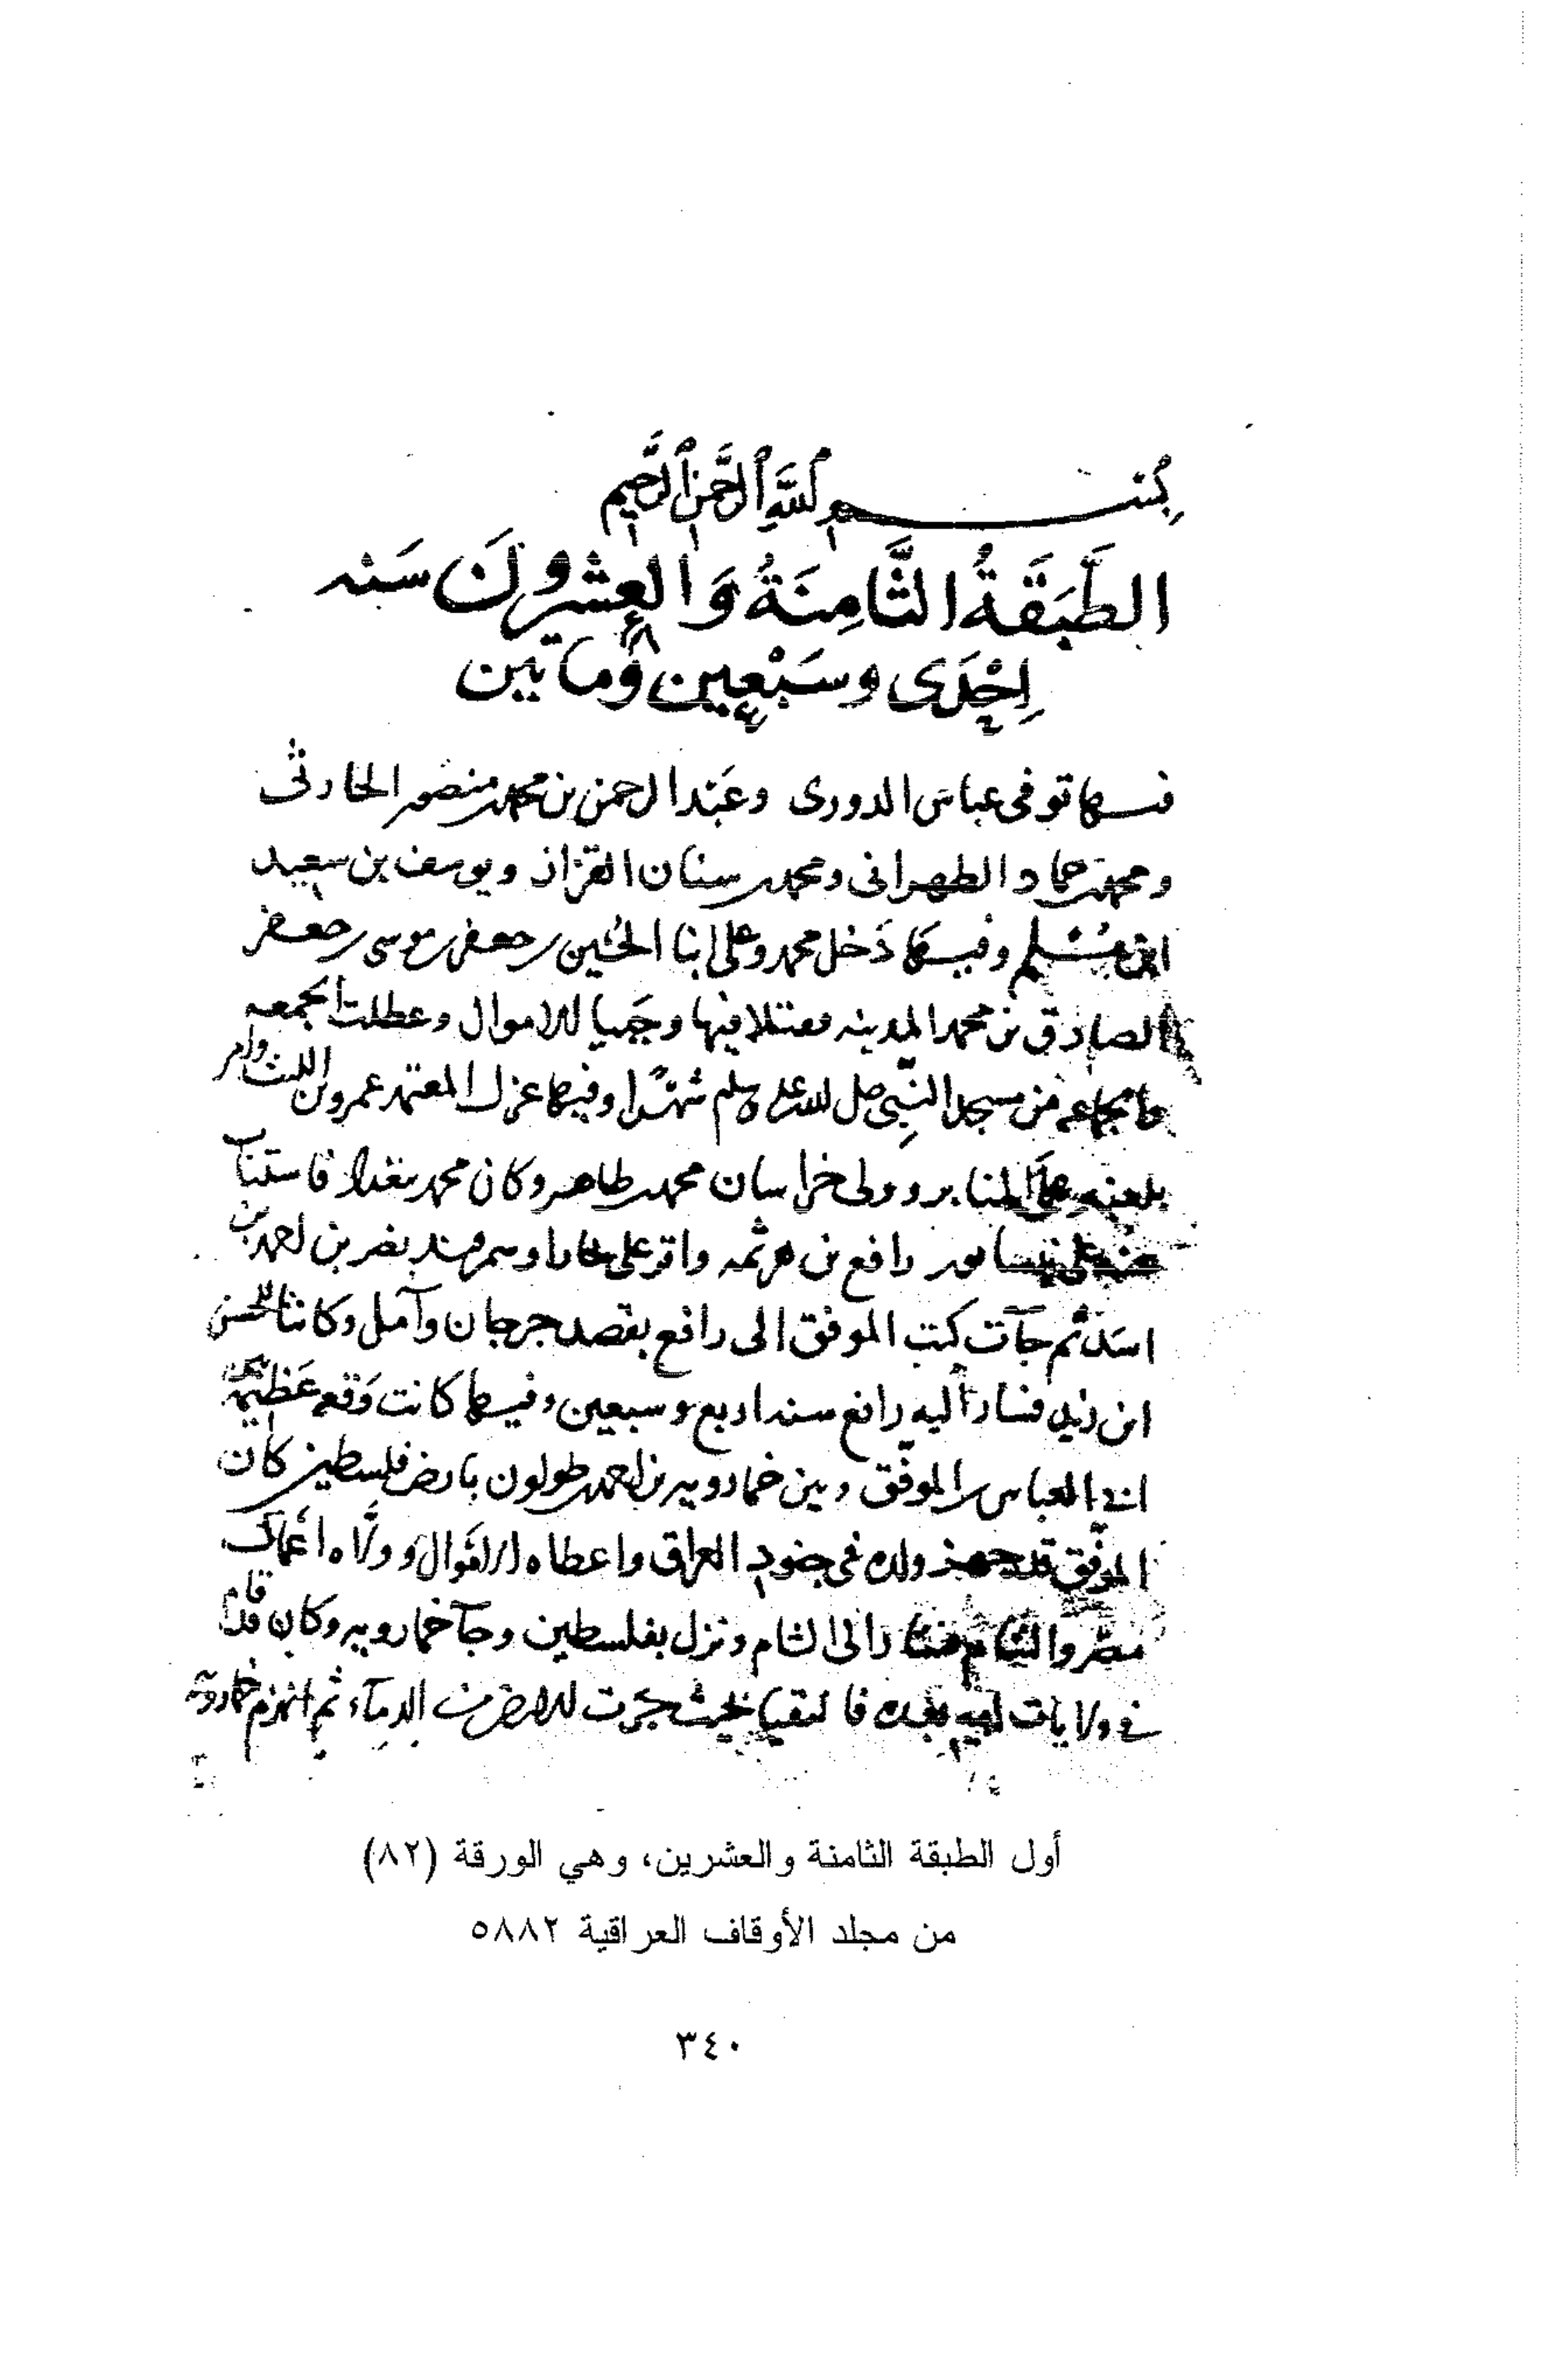 بسم الله الرحمن الرحيم
الطَّبَقَةُ الثَّامِنَةُ وَالعِشرونَ سَنه
اِحْدَى وسَبْعِين ومايتين
فيها توفى عباس الدورى وعَبْد الرحمن بن محمد بن منصور الحارثى
ومحمد بن حماد الطهرانى ومحمد بن سنان القزاز ويوسف بن سعيد
ابن مُسْلم وفيها دَخل محمد وعلى ابنا الحُسَين بن جعفر بن موسى بن جعفر
الصادق بن محمد المدينه فقتلا فيها وجَبيا الاموال وعطلت الجمعه
والجماعه من مسجد النَّبِى صلى الله عليه وسلم شهْرًا وفيها عزل المعتمد عمرو بن الليث وامر
بلعنه على المنابر وولى خراسان محمد بن طاهر وكان محمد ببغداد فاستناب
عنه على نيسابور رافع بن هرثمه واقر على بخارا وسمرقند نصر بن احمد بن
اسَد ثم جآت كتب الموفق الى رافع بقصد جرجان وآمل وكانتا للحسن
ابن زيد فسار اليه رافع سنه اربع وسبعين وفيها كانت وَقعه عَظيمه
ابى العباس بن الموفّق وبين خمارويه بن احمد بن طولون بارض فلسطين كان
الموفّق قد جهز ولده فى جنود العراق واعطاه الامْوَال وولَّاه اعْمال
مصْر والشام فسار الى الشام ونزل بفلسطين وجآ خمارويه وكان قد قام
فى ولايات ابيه بعده فالتقيا بحيث جَرَت الارض من الدِمآء ثم انهزم خمارويه
أول الطبقة الثامنة والعشرين، وهي الورقة (٨٢)
من مجلد الأوقاف العراقية ٥٨٨٢
٣٤٠